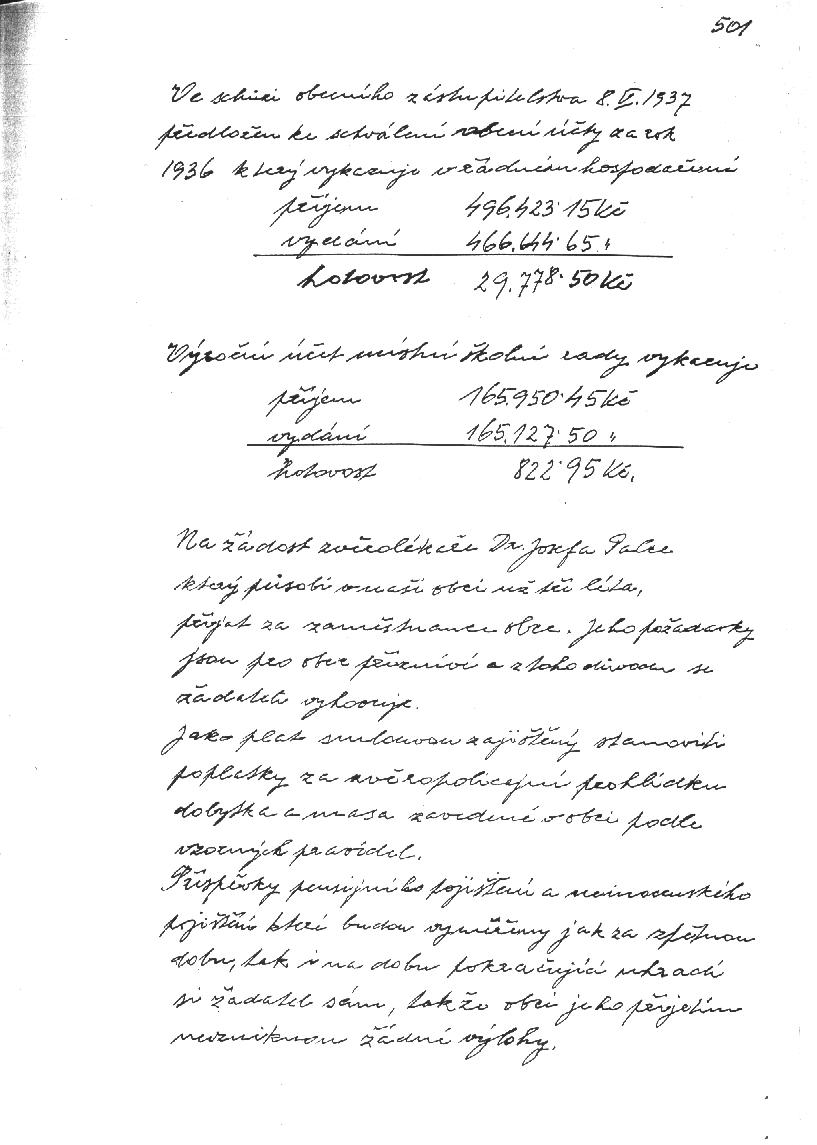 501
Ve schůzi obecního zastupitelstva 8.V.1937
předložen ke schválení účty za rok
1936 který vykazuje v řádném hospodaření
příjem 496.423·15 Kč
vydání 466.644·65 "
hotovost 29.778·50 Kč
Výroční účet místní školní rady vykazuje
příjem 165.950·45 Kč
vydání 165.127·50 "
hotovost 822·95 Kč.
Na žádost zvěrolékaře Dr. Josefa Palce
který působí v naší obci už tři léta,
přijat za zaměstnance obce. Jeho požadavky
jsou pro obec příznivé a z toho důvodu se
žadateli vyhovuje.
Jako plat smlouvou zajištěný stanoviti
poplatky za zvěropolicejní prohlídku
dobytka a masa zavedené v obci podle
vzorných pravidel.
Příspěvky pensijního pojištění a nemocenského
pojištění které budou vyměřeny jak za zpětnou
dobu, tak i na dobu pokračující uhradí
si žadatel sám, takže obci jeho přijetím
nevzniknou žádné výlohy.